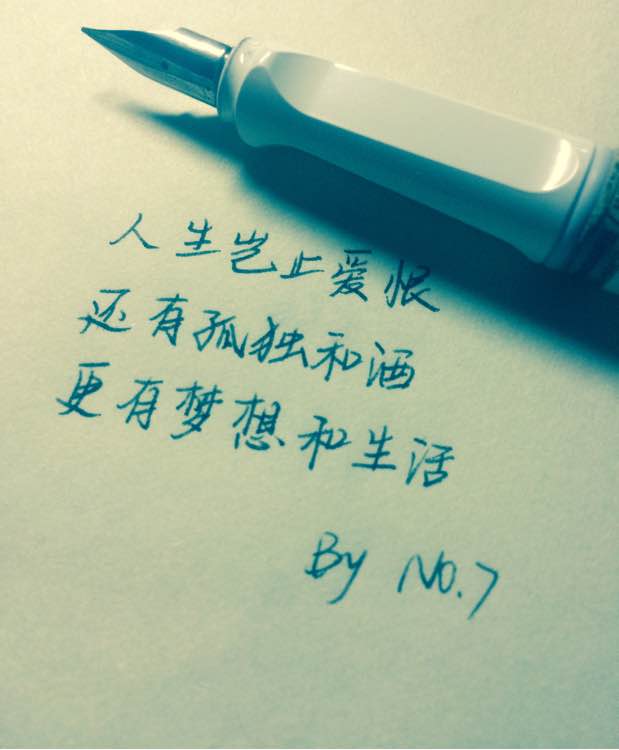 人生岂止爱恨
还有孤独和酒
更有梦想和生活
By No.7